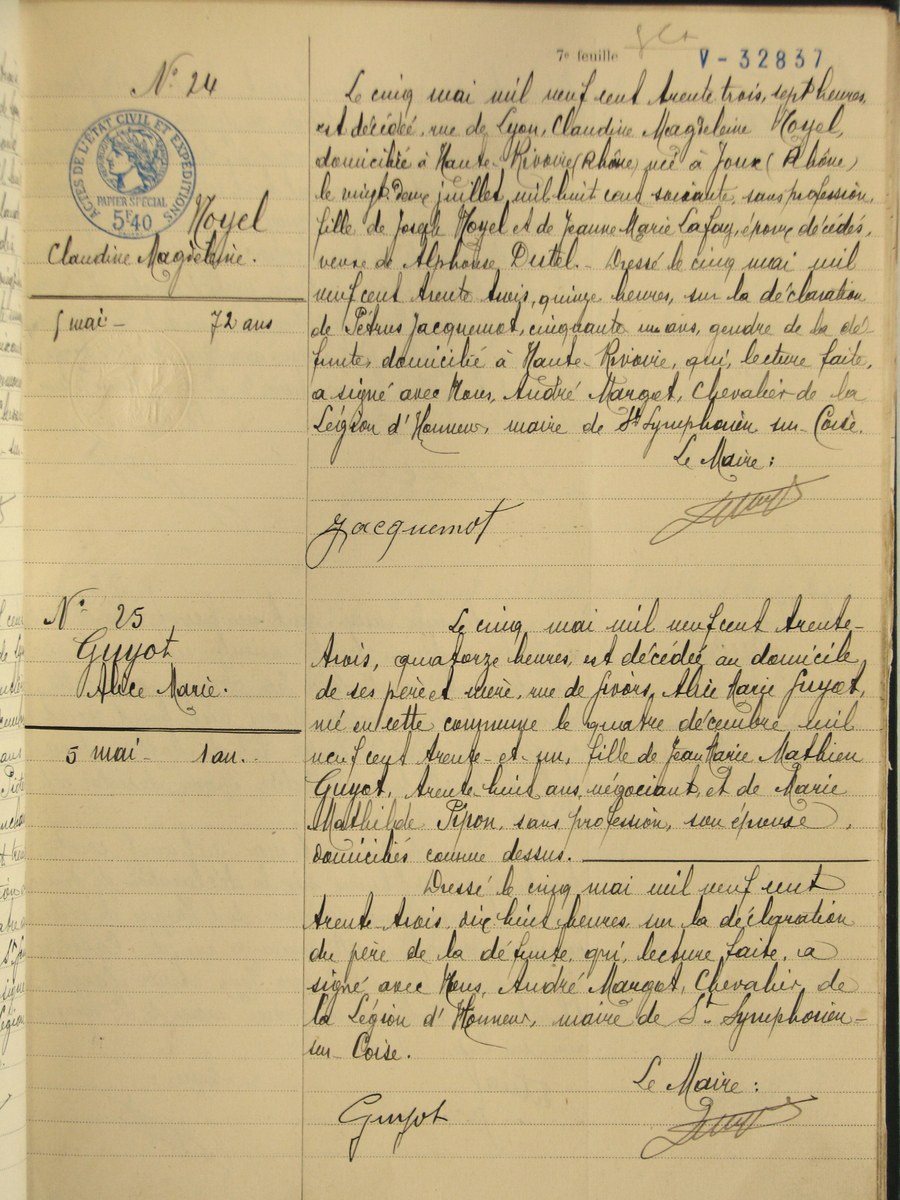 7e feuille
V - 32837
N° 24
ACTES DE L'ÉTAT CIVIL ET EXPÉDITIONS
PAPIER SPÉCIAL
5F40
Noyel
Claudine Magdeleine.
5 mai - 72 ans
Le cinq mai mil neuf cent trente trois, sept heures,
est décédée, rue de Lyon, Claudine Magdeleine Noyel,
domiciliée à Haute-Rivoire (Rhône) née à Joux (Rhône)
le vingt deux juillet, mil huit cent soixante, sans profession,
fille de Joseph Noyel et de Jeanne Marie Lafay, époux décédés,
veuve de Alphonse Distel. - Dressé le cinq mai mil
neuf cent trente trois, quinze heures, sur la déclaration
de Pétrus Jacquemot, cinquante un ans, gendre de la dé-
funte, domicilié à Haute-Rivoire, qui, lecture faite,
a signé avec Nous, André Margot, Chevalier de la
Légion d'Honneur, maire de St Symphorien sur-Coise.
Le Maire :
Jacquemot
N° 25
Guyot
Alice Marie.
5 mai - 1 an.
Le cinq mai mil neuf cent trente-
trois, quatorze heures, est décédée au domicile
de ses père et mère, rue de Givors, Alice Marie Guyot,
née en cette commune le quatre décembre mil
neuf cent trente-et-un, fille de Jean Marie Mathieu
Guyot, trente-huit ans, négociant, et de Marie
Mathilde Pipon, sans profession, son épouse,
domiciliés comme dessus.
Dressé le cinq mai mil neuf cent
trente-trois, dix huit heures, sur la déclaration
du père de la défunte, qui, lecture faite, a
signé avec Nous, André Margot, Chevalier de
la Légion d'Honneur, maire de St Symphorien-
sur-Coise.
Le Maire :
Guyot